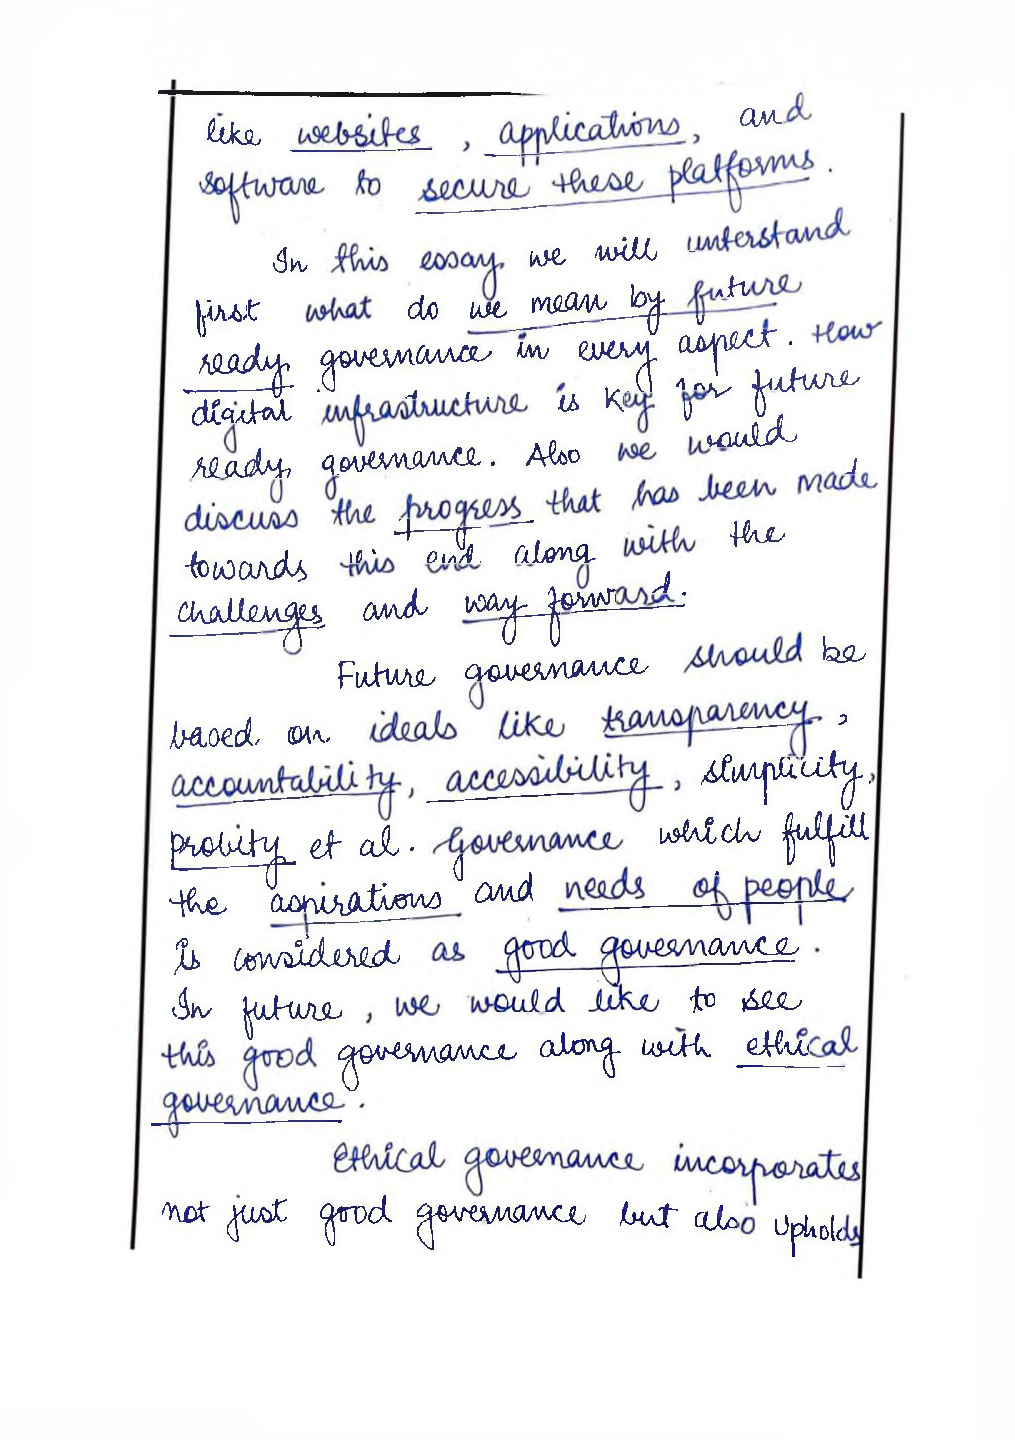 like websites, applications, and
software to secure these platforms.
In this essay, we will understand
first what do we mean by future
ready governance in every aspect. How
digital infrastructure is key for future
ready governance. Also we would
discuss the progress that has been made
towards this end along with the
challenges and way forward.
Future governance should be
based on ideals like transparency,
accountability, accessibility, simplicity,
probity et al. Governance which fulfill
the aspirations and needs of people
is considered as good governance.
In future, we would like to see
this good governance along with ethical
governance.
Ethical governance incorporates
not just good governance but also upholds